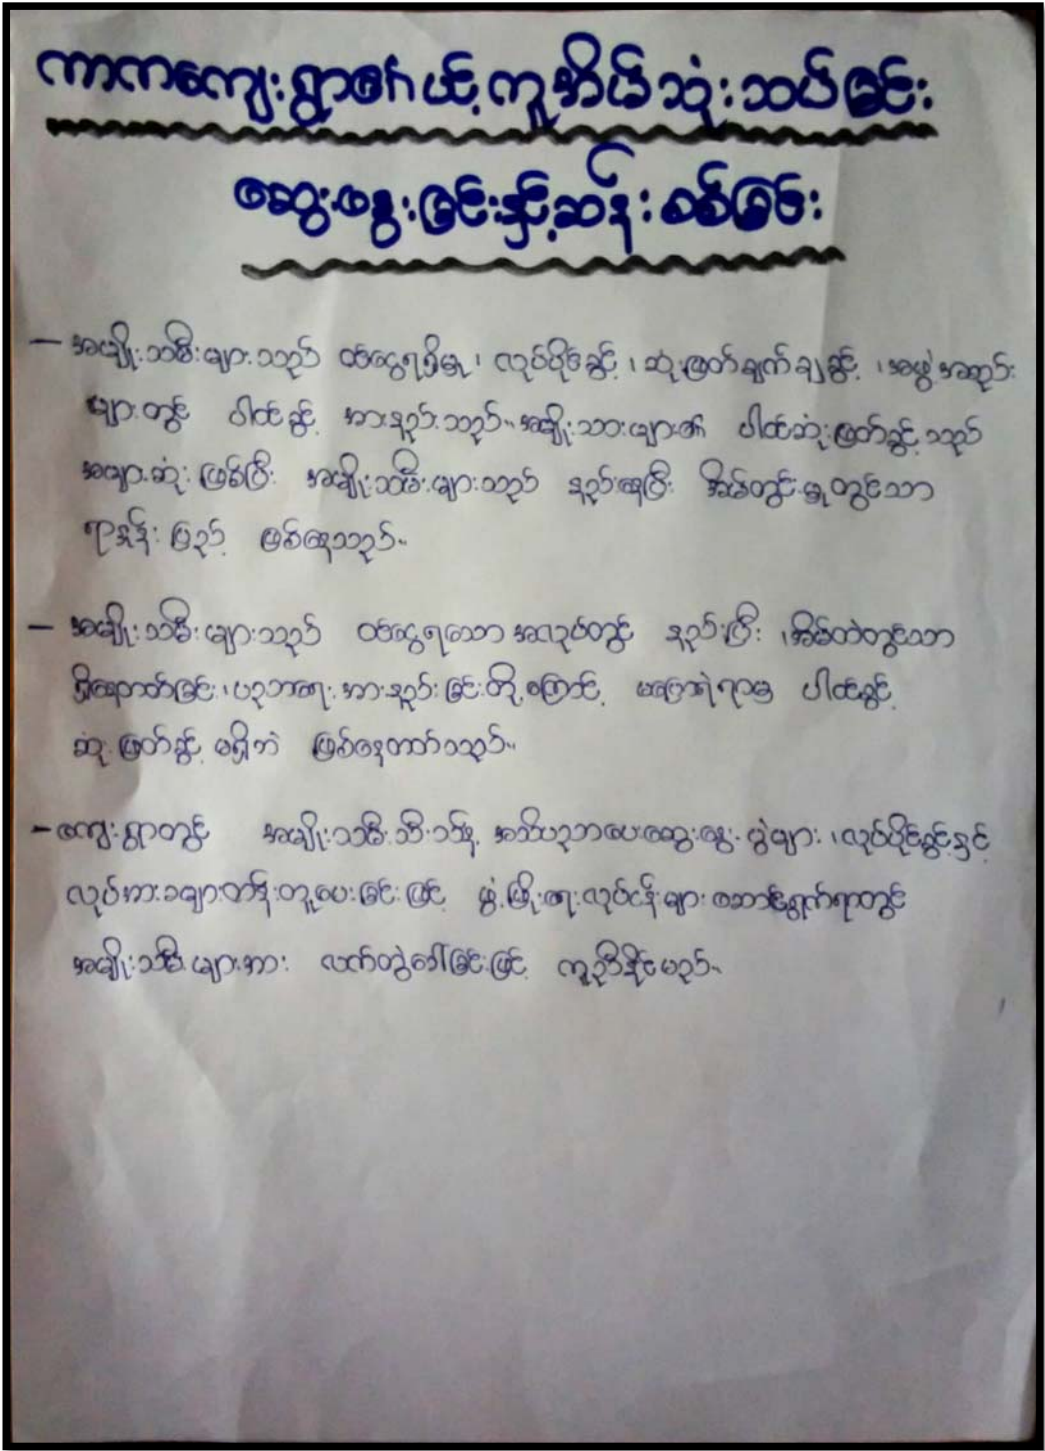 ကာကကျေးရွာ၏ ယင့်ကူအိမ်သုံးသပ်ခြင်း
ဆွေးနွေးခြင်းနှင့်ဆန်းစစ်ခြင်း
- အမျိုးသမီးများသည် ဝင်ငွေရရှိမှု၊ လုပ်ပိုင်ခွင့်၊ ဆုံးဖြတ်ချက်ချခွင့်၊ အဖွဲ့အစည်း
များတွင် ပါဝင်ခွင့် အားနည်းသည်။ အမျိုးသားများ၏ ပါဝင်ဆုံးဖြတ်ခွင့်သည်
အများဆုံးဖြစ်ပြီး အမျိုးသမီးများသည် နည်းနေပြီး အိမ်တွင်းမှုတွင်သာ
ရာနှုန်းပြည့် ဖြစ်နေသည်။
- အမျိုးသမီးများသည် ဝင်ငွေရသောအလုပ်တွင် နည်းပြီး၊ အိမ်ထဲတွင်သာ
ရှိနေတတ်ခြင်း၊ ပညာရေးအားနည်းခြင်းတို့ကြောင့် ပါဝင်ခွင့်
ဆုံးဖြတ်ခွင့်မရှိဘဲ ဖြစ်နေတတ်သည်။
- ကျေးရွာတွင် အမျိုးသမီးသီးသန့် အသိပညာပေးဆွေးနွေးပွဲများ၊ လုပ်ပိုင်ခွင့်နှင့်
လုပ်အားခများတန်းတူပေးခြင်းဖြင့် ဖွံ့ဖြိုးရေးလုပ်ငန်းများ ဆောင်ရွက်ရာတွင်
အမျိုးသမီးများအား လက်တွဲခေါ်ခြင်းဖြင့် ကူညီနိုင်မည်။